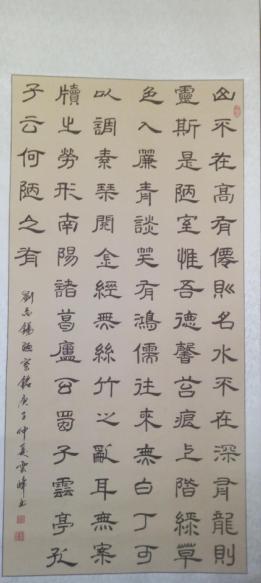 山不在高有僊則名水不在深有龍則
靈斯是陋室惟吾德馨苔痕上階綠草
色入簾青談笑有鴻儒往來無白丁可
以調素琴閱金經無絲竹之亂耳無案
牘之勞形南陽諸葛廬西蜀子雲亭孔
子云何陋之有
劉禹錫陋室銘庚子仲夏雲峰書